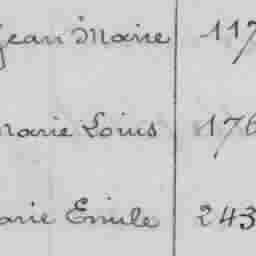 Jean Marie 117
Marie Louis 176
Marie Emile 243